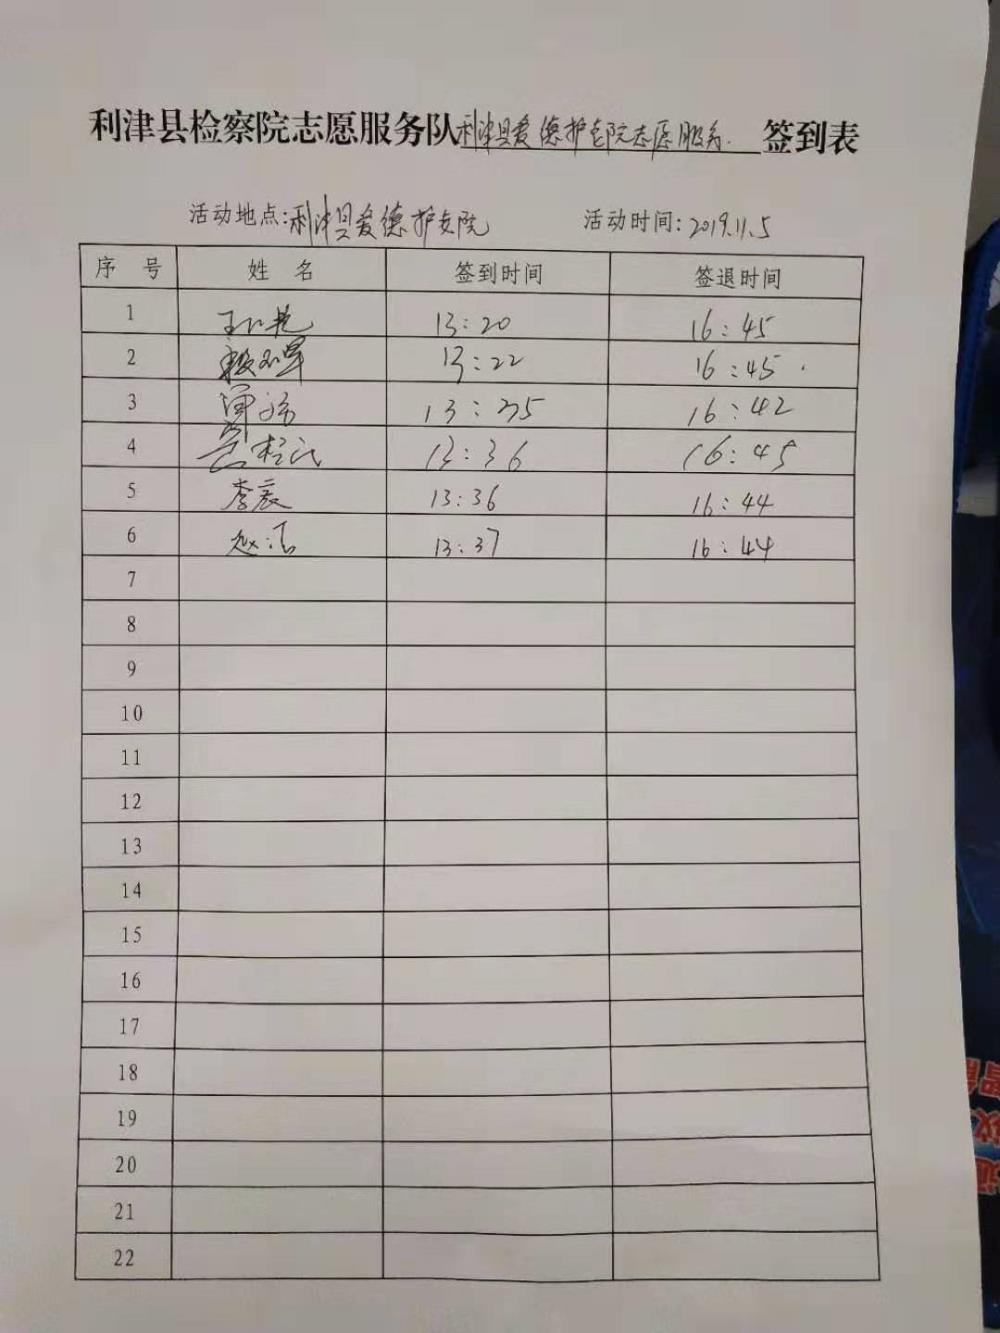 利津县检察院志愿服务队利津县爱德护老院志愿服务 签到表
活动地点:利津县爱德护老院 活动时间:2019.11.5
序号 姓名 签到时间 签退时间
1 13:20 16:45
2 13:22 16:45
3 13:35 16:42
4 13:36 16:45
5 李辰 13:36 16:44
6 赵洁 13:37 16:44
7
8
9
10
11
12
13
14
15
16
17
18
19
20
21
22